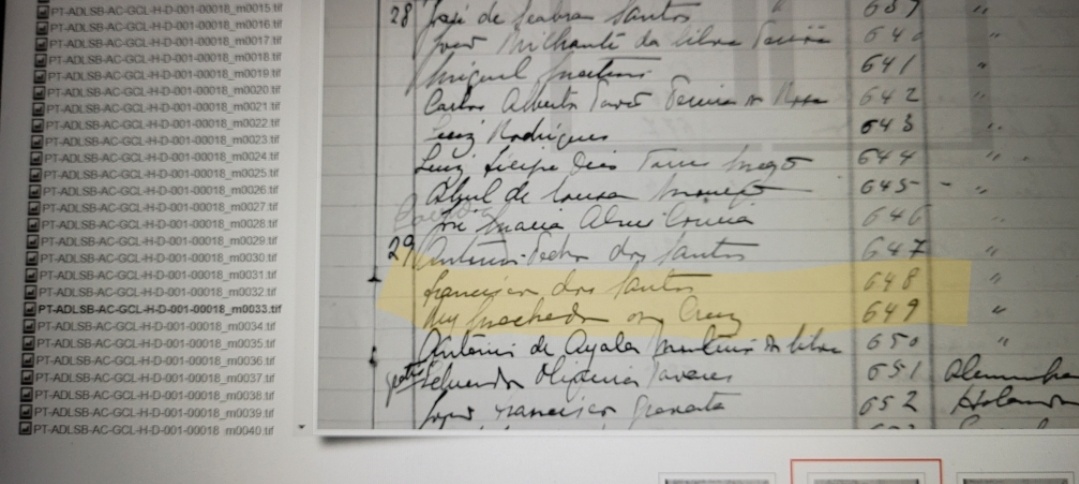 PT-ADLSB-AC-GCL-H-D-001-00018_m0015.tif
PT-ADLSB-AC-GCL-H-D-001-00018_m0016.tif
PT-ADLSB-AC-GCL-H-D-001-00018_m0017.tif
PT-ADLSB-AC-GCL-H-D-001-00018_m0018.tif
PT-ADLSB-AC-GCL-H-D-001-00018_m0019.tif
PT-ADLSB-AC-GCL-H-D-001-00018_m0020.tif
PT-ADLSB-AC-GCL-H-D-001-00018_m0021.tif
PT-ADLSB-AC-GCL-H-D-001-00018_m0022.tif
PT-ADLSB-AC-GCL-H-D-001-00018_m0023.tif
PT-ADLSB-AC-GCL-H-D-001-00018_m0024.tif
PT-ADLSB-AC-GCL-H-D-001-00018_m0025.tif
PT-ADLSB-AC-GCL-H-D-001-00018_m0026.tif
PT-ADLSB-AC-GCL-H-D-001-00018_m0027.tif
PT-ADLSB-AC-GCL-H-D-001-00018_m0028.tif
PT-ADLSB-AC-GCL-H-D-001-00018_m0029.tif
PT-ADLSB-AC-GCL-H-D-001-00018_m0030.tif
PT-ADLSB-AC-GCL-H-D-001-00018_m0031.tif
PT-ADLSB-AC-GCL-H-D-001-00018_m0032.tif
PT-ADLSB-AC-GCL-H-D-001-00018_m0033.tif
PT-ADLSB-AC-GCL-H-D-001-00018_m0034.tif
PT-ADLSB-AC-GCL-H-D-001-00018_m0035.tif
PT-ADLSB-AC-GCL-H-D-001-00018_m0036.tif
PT-ADLSB-AC-GCL-H-D-001-00018_m0037.tif
PT-ADLSB-AC-GCL-H-D-001-00018_m0038.tif
PT-ADLSB-AC-GCL-H-D-001-00018_m0039.tif
PT-ADLSB-AC-GCL-H-D-001-00018_m0040.tif
28 José de Seabra Santos 639 "
da Silva 640 "
Miguel Martins 641 "
Carlos Alberto Pereira da Rosa 642 "
Luiz Rodrigues 643 "
Luiz Filipe Dias 644 "
Abel de Sousa 645 - "
José Maria Correia 646 "
29 António Pedro dos Santos 647 "
Francisco dos Santos 648 "
Ruy Machado da Cruz 649 "
António de Ayala Martins da Silva 650 "
Oliveira Tavares 651
Francisco 652